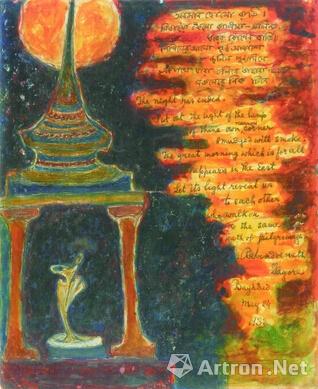 অবসান হোলো রাতি ।
নিবাইয়া ফেলো কালিমা-মলিন
ঘরের কোণের বাতি ।
নিখিলের আলো পূর্ব আকাশে
জ্বলিল পুণ্যদিনে
এক পথে যারা চলিবে তাহারা
সকলেরে নিক চিনে
The night has ended.
Put out the light of the lamp
of thine own narrow corner
smudged with smoke.
The great morning which is for all
appears in the East.
Let its light reveal us
to each other
who walk on
the same
path of pilgrimage
Rabindranath
Tagore
Baghdad
May 24
Artron.Net